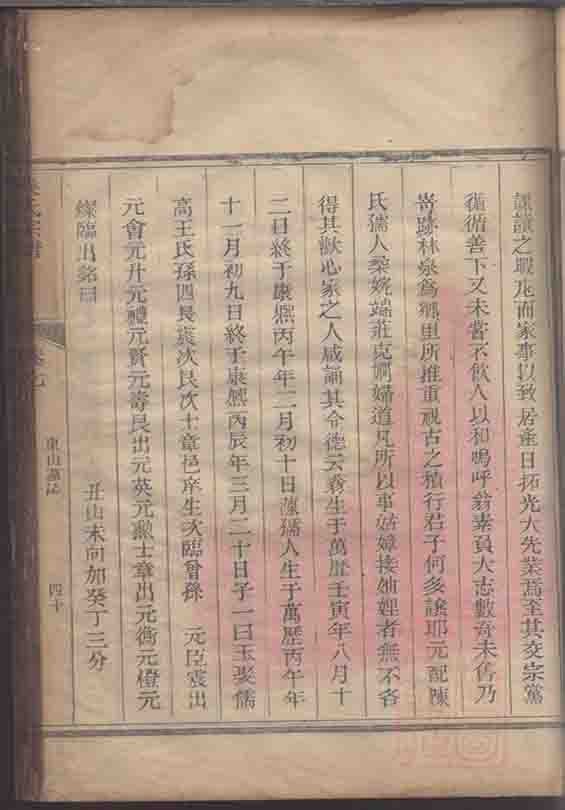 讓之暇凡而家事以致居產日拓光大先業焉至其交宗黨
循循善下又未嘗不飲人以和嗚呼翁素負大志數奇未售乃
跡林泉為鄉里所推重視古之積行君子何多讓耶元配陳
氏孺人柔婉端莊克嫻婦道凡所以事姑嫜接妯娌者無不各
得其歡心家之人咸誦其令德云翁生于萬歷壬寅年八月十
二日終于康熙丙午年二月初十日陳孺人生于萬歷丙午年
十一月初九日終于康熙丙辰年三月二十日子一曰玉娶儒
高王氏孫四長震次良次士章邑庠生次臨曾孫 元臣震出
元會元升元禮元賢元壽良出元英元勳士章出元衡元橙元
燦臨出銘曰 丑山未向加癸丁三分
東山墓誌 四十